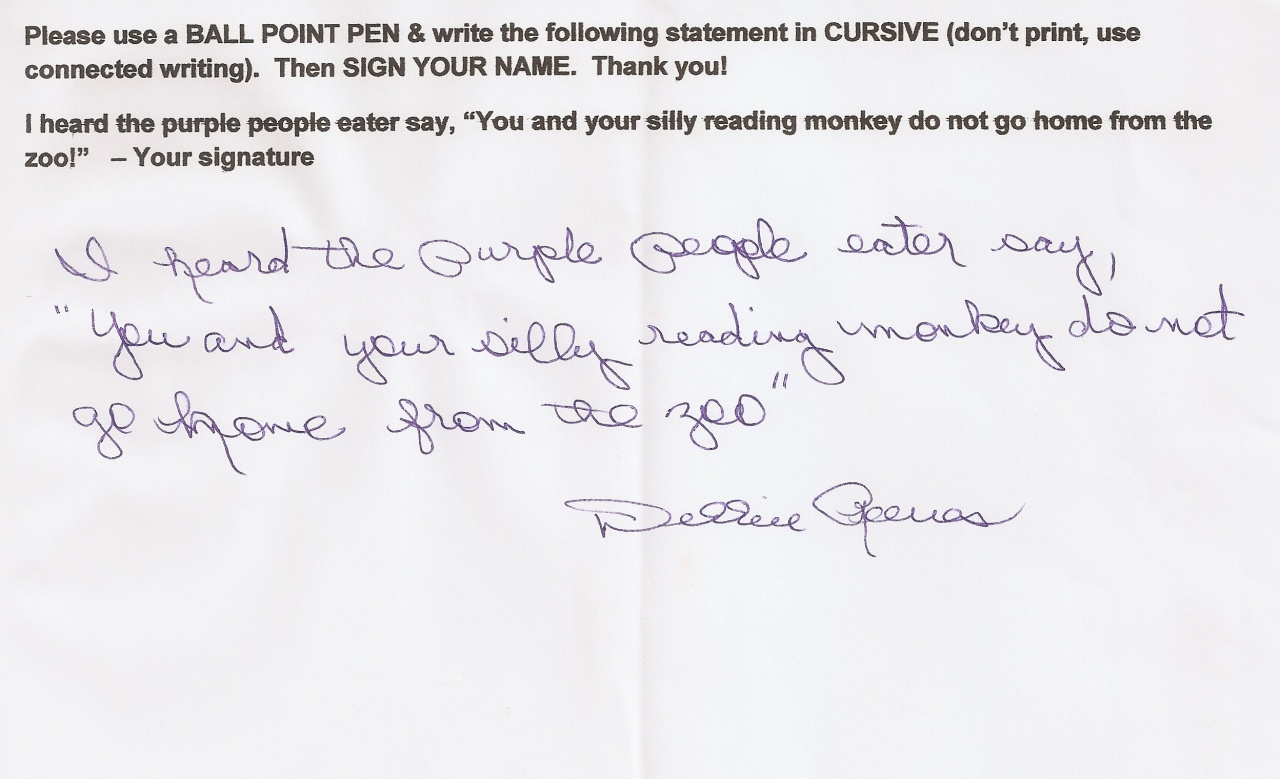 Please use a BALL POINT PEN & write the following statement in CURSIVE (don't print, use
connected writing). Then SIGN YOUR NAME. Thank you!
I heard the purple people eater say, “You and your silly reading monkey do not go home from the
zoo!” – Your signature
I heard the purple people eater say,
"You and your silly reading monkey do not
go home from the zoo"
Debbie